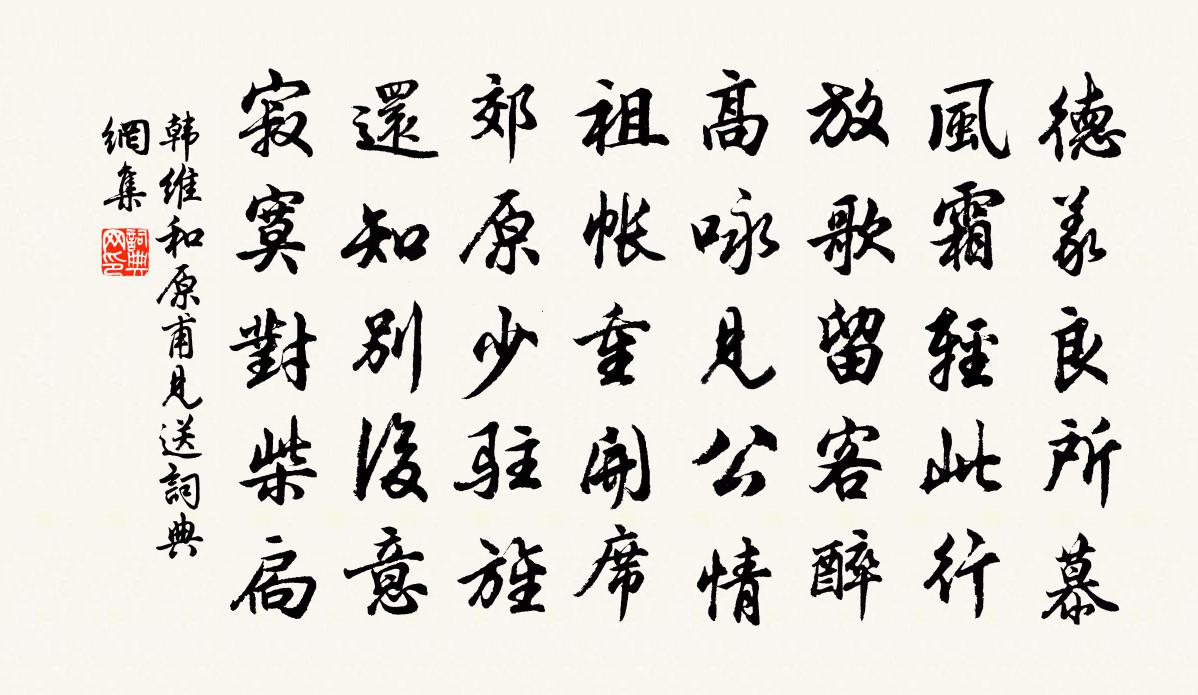 德義良所慕
風霜輕此行
放歌留客醉
高咏見公情
祖帳重開席
郊原少駐旌
還知別後意
寂寞對柴扃
韩維和原甫見送詞典
網集
詞典
网印